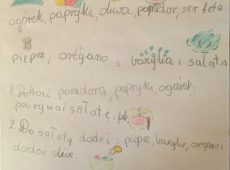 ogórek, papryka, oliwa, pomidor, ser feta
pieprz, oregano, bazylia i sałata
1. Pokroić pomidora, paprykę, ogórek,
porywać sałatę i
2. Do sałaty dodać: pieprz, bazylię, oregano,
dodać